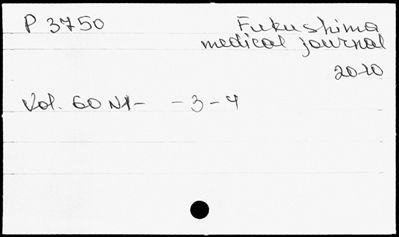 P 3750 Fukushima
medical journal
2010
Vol. 60 N1- -3-4